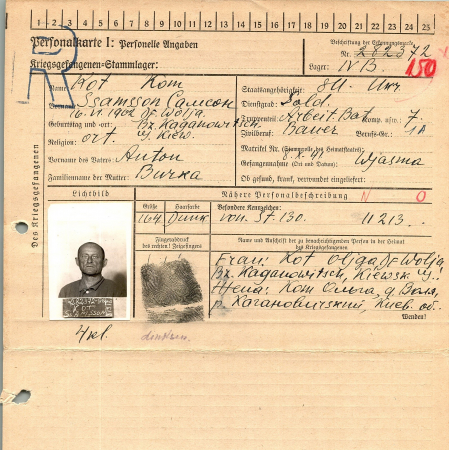 1 2 3 4 5 6 7 8 9 10 11 12 13 14 15 16 17 18 19 20 21 22 23 24 25
Personalkarte I: Personelle Angaben
Kriegsgefangenen-Stammlager:
Beschriftung der Erkennungsmarke
Nr. 282372
Lager: IV B. 150
Des Kriegsgefangenen
Name: Kot Кот
Vorname: Ssamsson Самсон
Geburtstag und -ort: 16.VI.1902 Df. Wolja
Bz. Kaganowitsch,
Kiew.
Religion: ort.
Vorname des Vaters: Anton
Familienname der Mutter: Burka
Staatsangehörigkeit:
Dienstgrad: Sold.
Truppenteil: Arbeit. Bat. Komp. usw.: 7.
Zivilberuf: Bauer Berufs-Gr.: 1A
Matrikel Nr. (Stammrolle des Heimatstaates):
Gefangennahme (Ort und Datum): 8.X.41 Wjasma
Ob gesund, krank, verwundet eingeliefert:
Lichtbild
Nähere Personalbeschreibung
N O
Größe
164
Haarfarbe
Dunk
Besondere Kennzeichen:
von St. 130. 11213.
Fingerabdruck
des rechten! Zeigefingers
Name und Anschrift der zu benachrichtigenden Person in der Heimat
des Kriegsgefangenen
Frau: Kot Oljga Df Wolja
Bz. Kaganowitsch, Kiewsk
Жена: Кот Ольга, д. Воля,
р. Кагановичский, Киев. об.
Wenden!